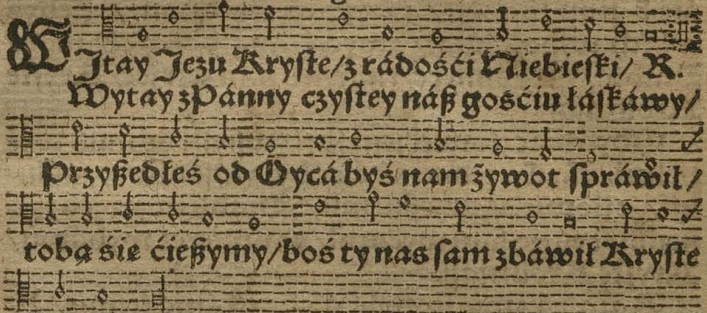 WJtay Jezu Kryſte/z rádośći Niebieſki/ R.
Wytay z Pánny czyſtey náß gośćiu łáſkáwy/
Przyßedłeś od Oycá byś nam żywot ſpráwił/
tobą śię ćießymy/boś ty nas ſam zbáwił Kryſte